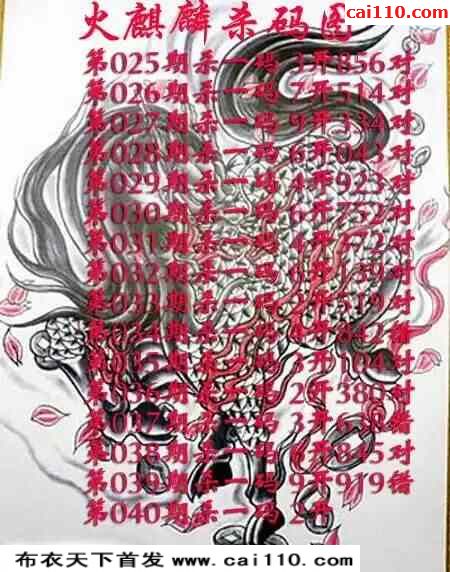 cai110.com
火麒麟杀码图
第025期杀一码 3开856对
第026期杀一码 7开514对
第027期杀一码 9开334对
第028期杀一码 6开043对
第029期杀一码 4开923对
第030期杀一码 6开752对
第031期杀一码 4开772对
第032期杀一码 6开139对
第033期杀一码 开519对
第034期杀一码 开842错
第035期杀一码 开104对
第036期杀一码 2开380对
第037期杀一码 3开639错
第038期杀一码 6开845对
第039期杀一码 9开919错
第040期杀一码 2开
布衣天下首发 www.cai110.com